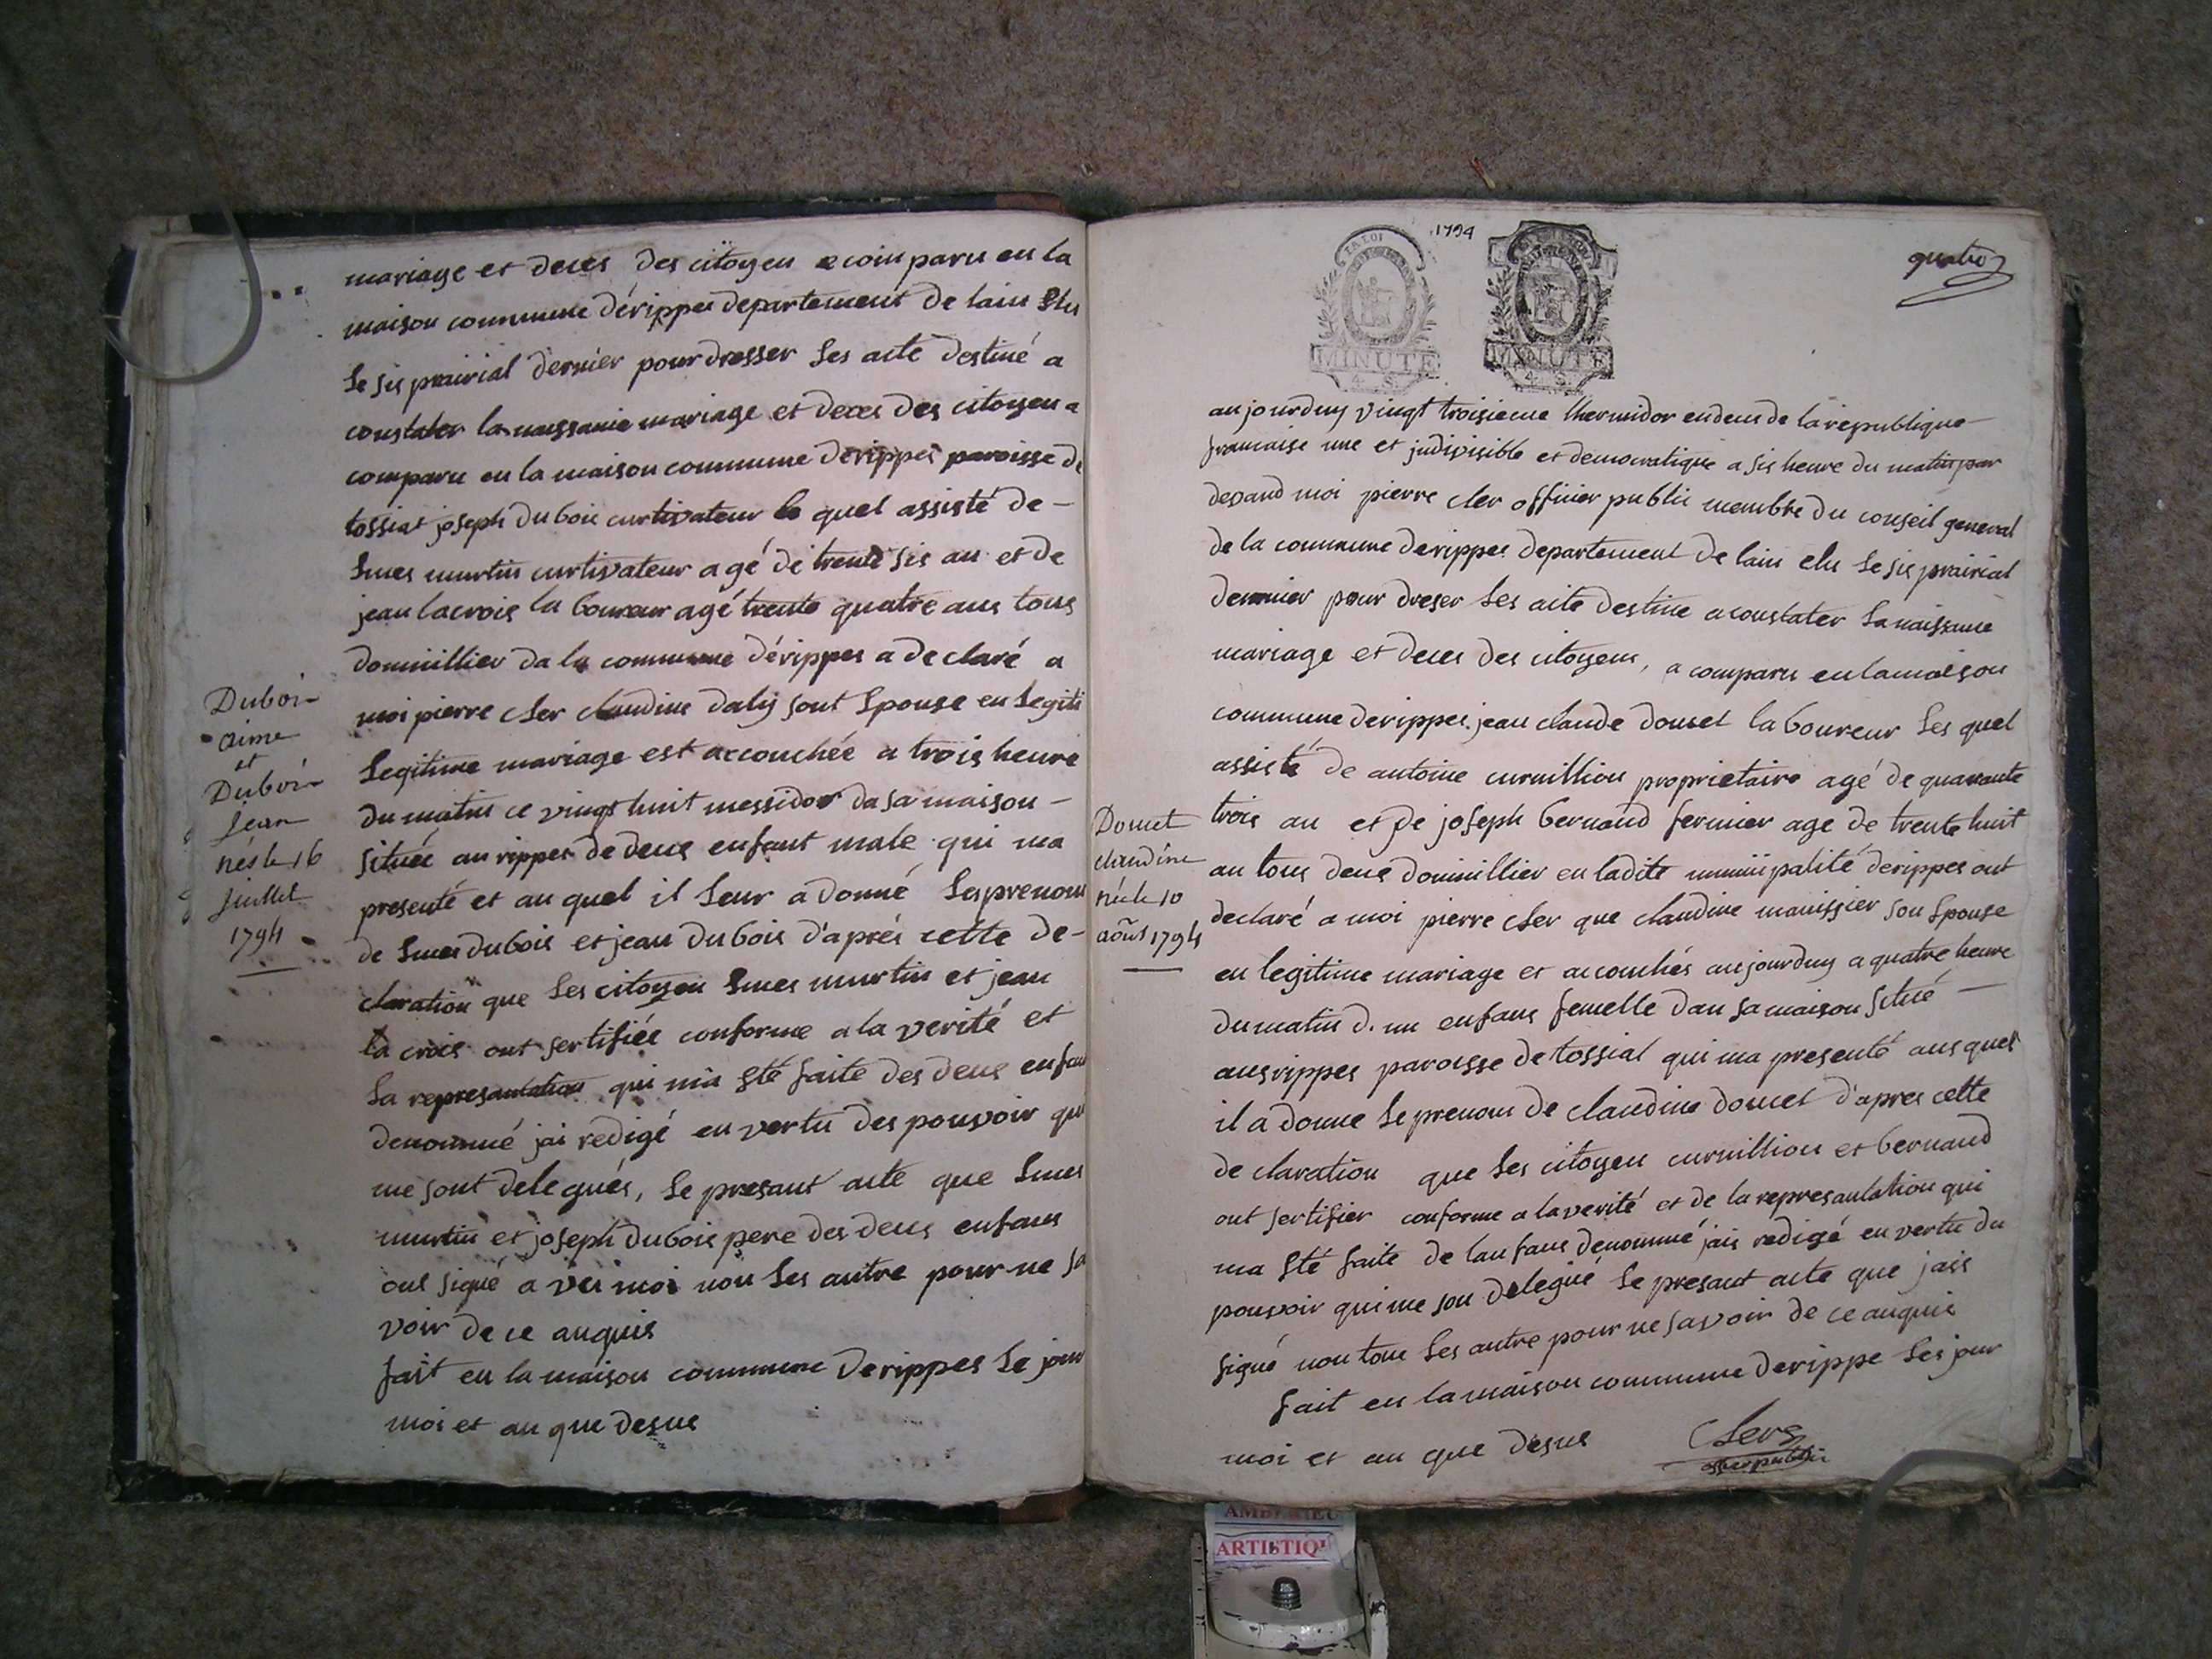 mariage et deces des citoyen a comparu en la
maison commune dérippes departement de lain Elu
le sis prairial dernier pour dresser les acte destiné a
constater la naissance mariage et deces des citoyen a
comparu en la maison commune derippes paroisse de
tossiat joseph dubois curtivateur le quel assisté de –
murtin curtivateur agé de trente sis an et de
jean lacrois la boureur agé trente quatre ans tous
domicillier da la commune dérippes a declaré a
moi pierre cler claudine daly sont Epouse en legiti
legitime mariage est accouchée a trois heure
du matin ce vingt huit messidor da sa maison –
située au rippes de deus enfant male qui ma
presenté et au quel il leur a donné les prenom
de dubois et jean dubois d'aprés cette de-
claration que les citoyen murtin et jean
la crois ont sertifiée conforme a la verité et
la represantation qui ma Eté faite des deus enfan
denommé jai redigé en vertu des pouvoir qui
me sont delegués, le presant acte que
murtin et joseph dubois pere des deus enfans
ont signé a vec moi non les autre pour ne sa
voir de ce anquis
fait en la maison commune derippes le jour
moi et an que desus
Duboi-
aime
et
Duboi-
jean
nés le 16
Juillet
1794
1794
LA LOI
MINUTE
4. S.
MINUTE
4. S.
quatre
aujourduy vingt troisieme thermidor en deus de la republique –
francaise une et jndivisible et democratique a sis heure du matin par
devand moi pierre cler officier public membre du conseil general
de la commune derippes departement de lain elu le sis prairial
dernier pour dreser les acte destine a constater la naissance
mariage et deces des citoyens, a comparu en la maison
commune derippes jean claude doucet la boureur les quel
assisté de antoine curnillion proprietaire agé de quarante
trois an et de joseph bernand fermier age de trente huit
an tous deus domicillier en ladite municipalité derippes ont
declaré a moi pierre cler que claudine manissier son Epouse
en legitime mariage et accouchés aujourduy a quatre heure
du matin d. un enfans femelle dan sa maison situé –
aus rippes paroisse de tossial qui ma presenté aus quel
il a donne le prenom de claudine doucet d'apres cette
de claration que les citoyen curnillion et bernand
ont sertifier conforme a la verité et de la represantation qui
ma Eté faite de lanfans denommé jais redigé en vertu du
pouvoir qui me son delegué le presant acte que jais
signé non tous les autre pour ne savoir de ce anquis
fait en la maison commune derippe les jour
moi et an que desus
Doucet
claudine
née le 10
août 1794
Clers
offier public
AMBERIEU
ARTISTIQU